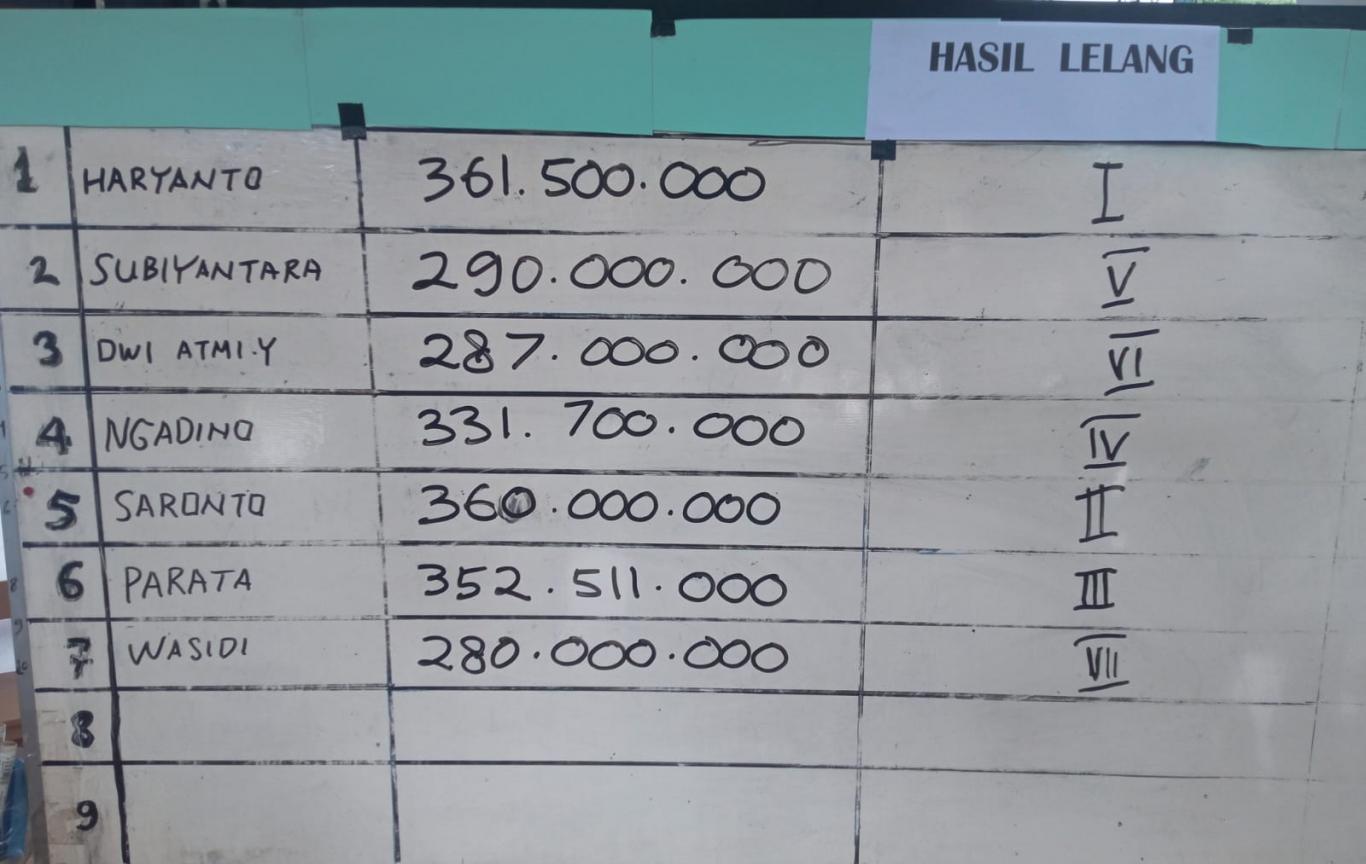 HASIL LELANG
1 HARYANTO 361.500.000 I
2 SUBIYANTARA 290.000.000 V
3 DWI ATMI.Y 287.000.000 VI
4 NGADINO 331.700.000 IV
5 SARONTO 360.000.000 II
6 PARATA 352.511.000 III
7 WASIDI 280.000.000 VII
8
9